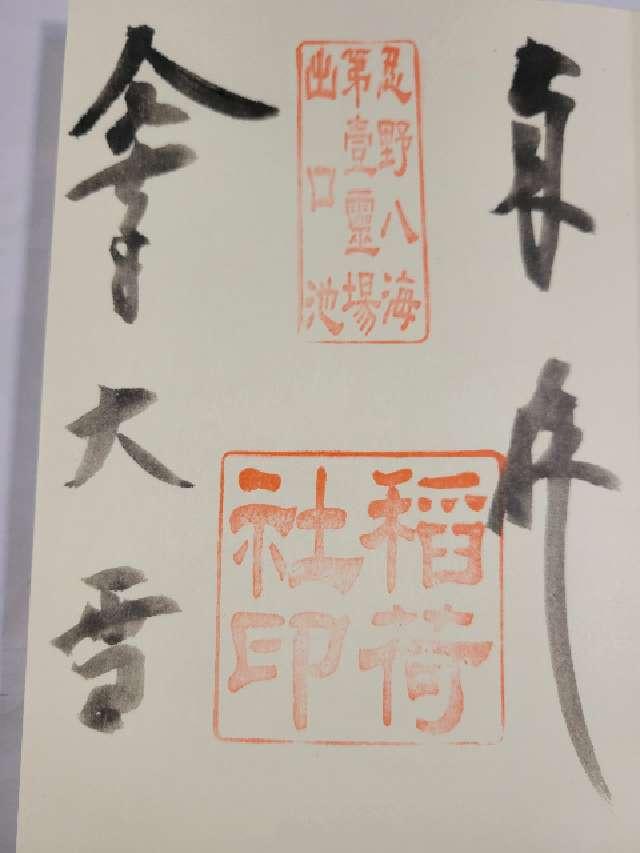 奉拝
忍野八海
第壹靈場
出口池
稲荷
社印
大雪